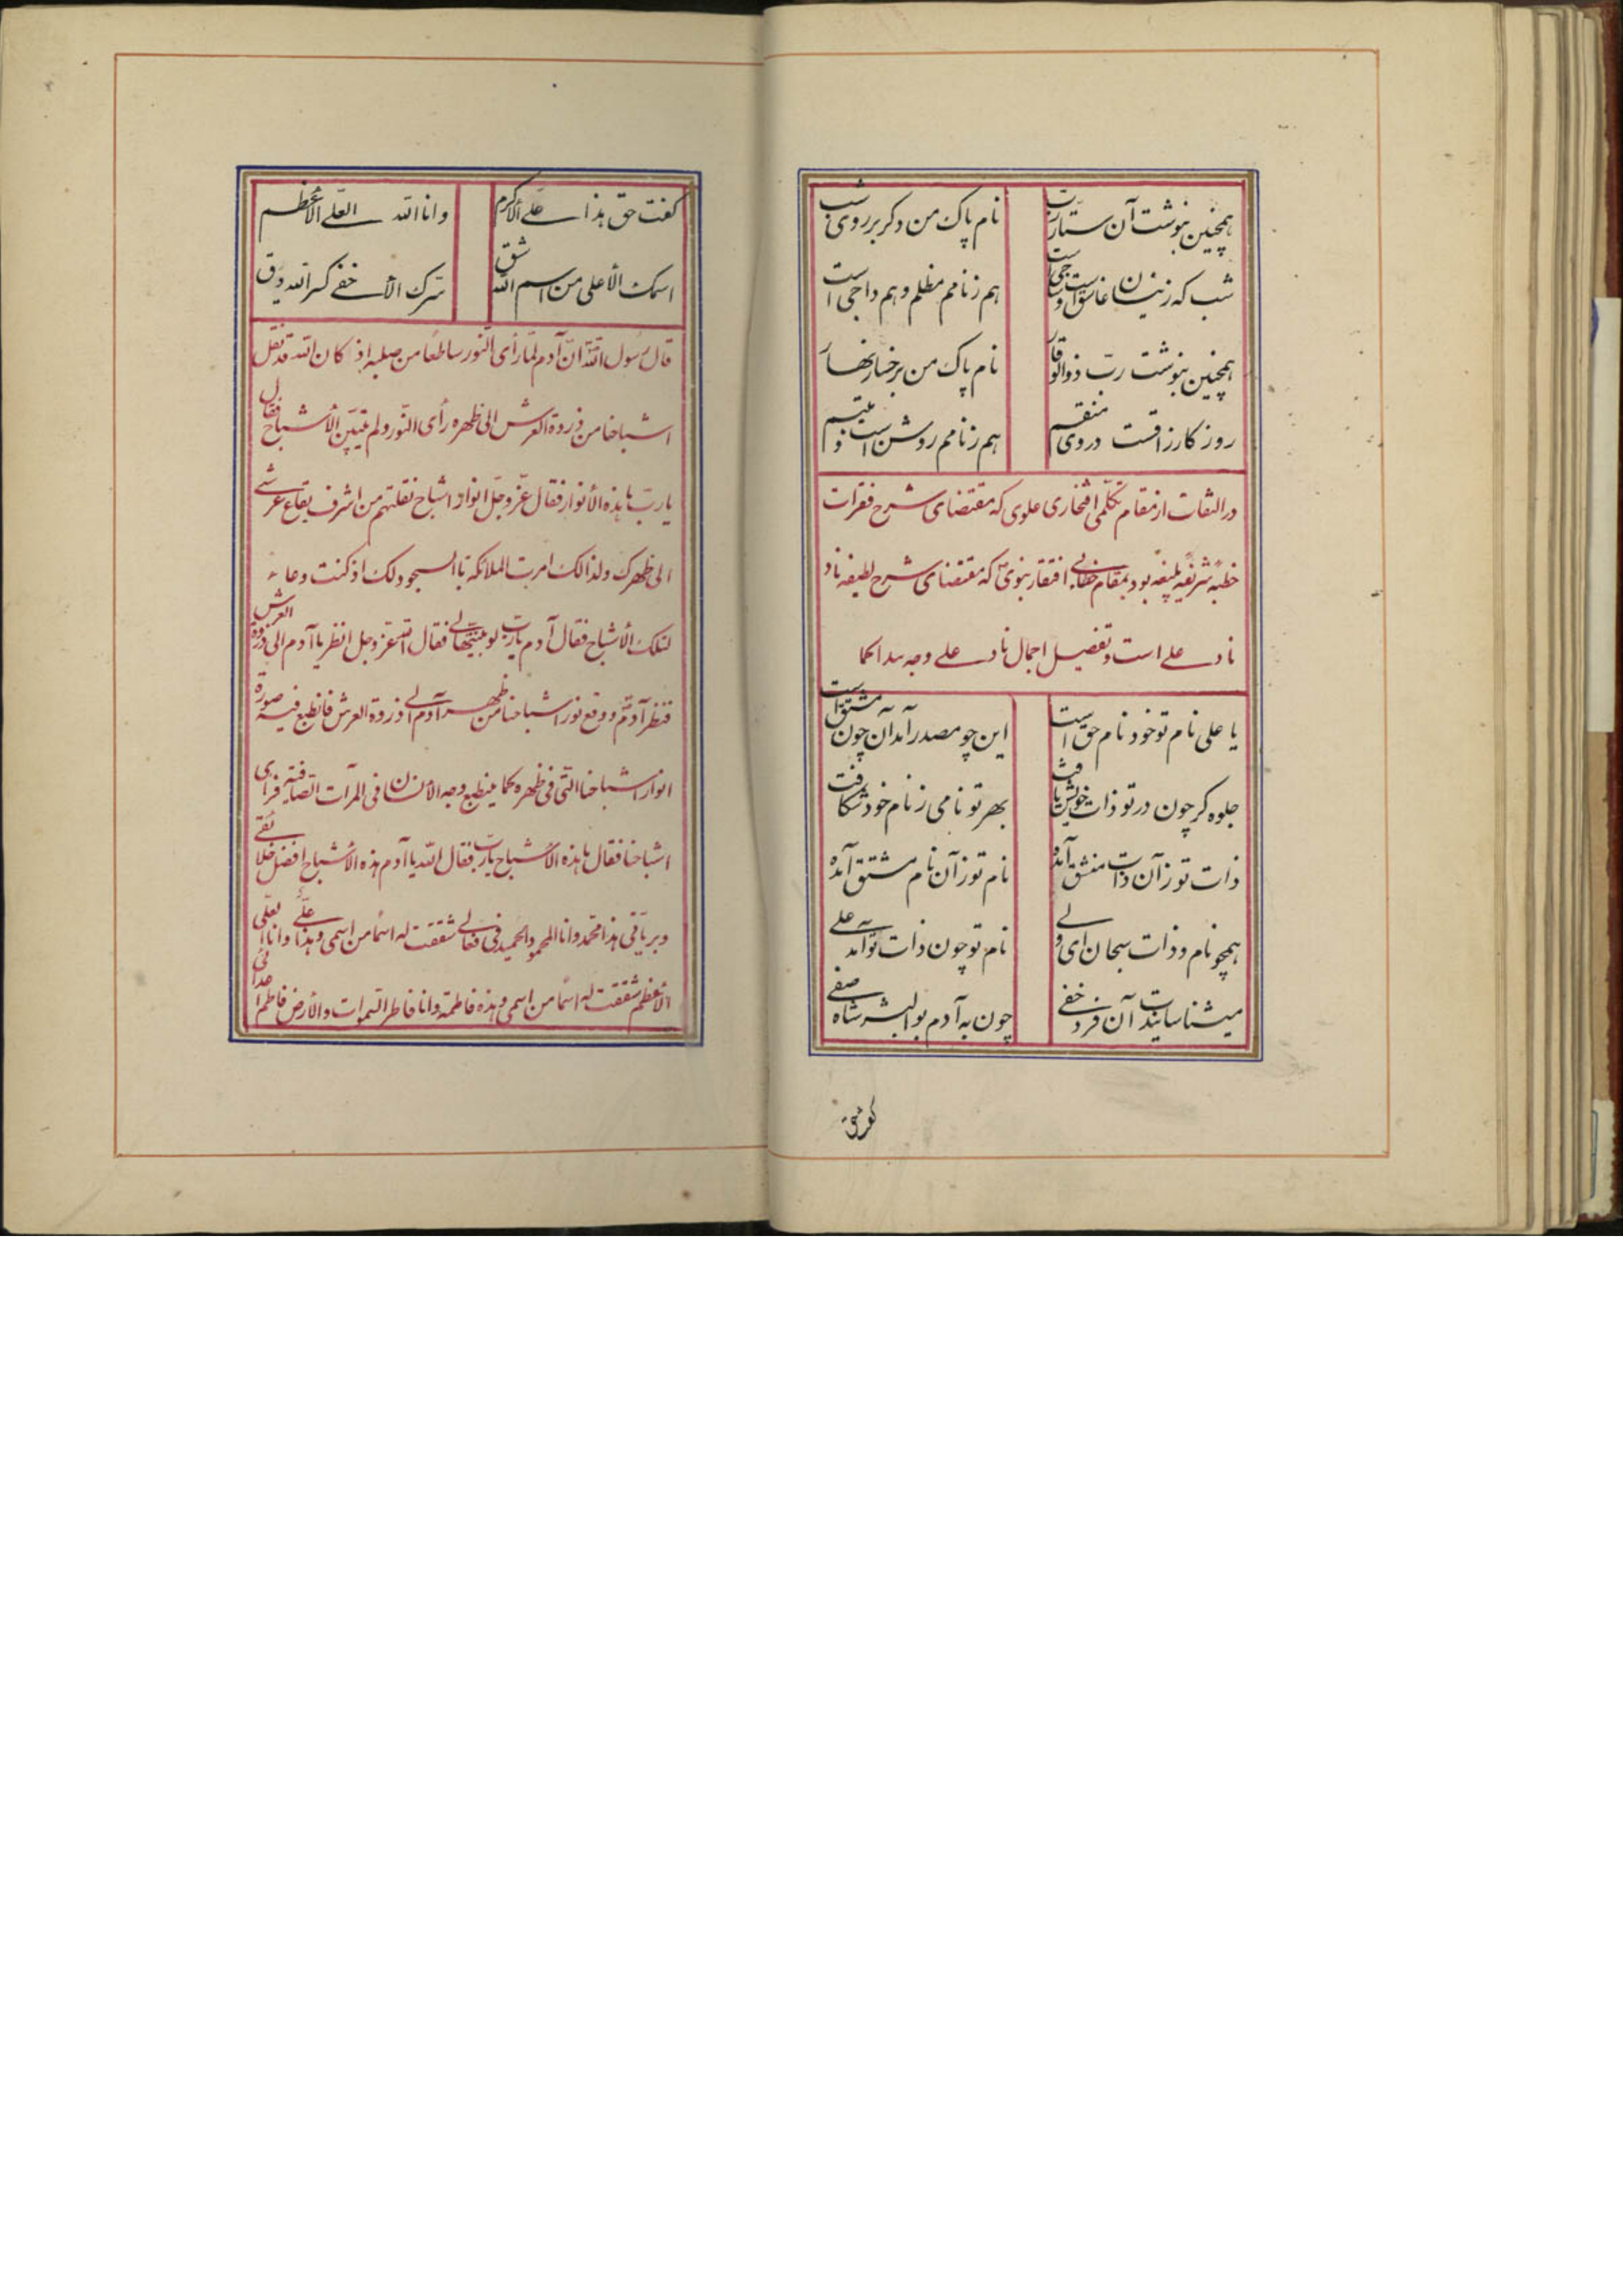 همچنین بنوشت آن ستار رب نام پاک من دگر بر روی شب
شب که زینسان غاسق است و ساجی است هم ز نامم مظلم و هم داجی است
همچنین بنوشت رب ذو الوقار نام پاک من بر خسار نهار
روز کارزاقست در وی منقسم هم ز نامم روشن است و مبتسم
در التفات از مقام تکلمی افتخاری علوی که مقتضای شرح فقرات
خطبه شریفه بلیغه بود بمقام خطابی افتقار نبوی که مقتضای شرح لطیفه ناد
ناد علی است و تفصیل اجمال ناد علی وجه
یا علی نام تو خود نام حق است این چو مصدر آمد آن چون مشتق است
جلوه گر چون در تو ذات خویش یافت بهر تو نامی ز نام خود شکافت
ذات تو زآن ذات منشق آمده نام تو زآن نام مشتق آمده
همچو نام و ذات سبحان ای ولی نام تو چون ذات تو آمد علی
میشناسانید آن فرد خفی چون به آدم بو البشر شاه صفی
گفت حق
گفت حق هذا علی الاکرم و انا الله العلی الاعظم
اسمک الأعلی من اسم الله شق سرک الأخفی کسر الله دق
قال رسول الله ان آدم لما رأی النور ساطعا من صلبه اذ کان الله قد نقل
اشباحنا من ذروة العرش الی ظهره رأی النور و لم یتبین الأشباح فقال
یا رب ما هذه الأنوار فقال عز و جل انوار اشباح نقلتهم من اشرف بقاع عرشی
الی ظهرک و لذالک امرت الملائکه باالسجود لک اذ کنت وعاء
لتلک الأشباح فقال آدم یا رب لو بینتهالی فقال الله عز و جل انظر یا آدم الی ذروة العرش
فنظر آدم و وقع نور اشباحنا من ظهر آدم الی ذروة العرش فانطبع فیه صورة
انوار اشباحنا التی فی ظهره کما ینطبع وجه الأنسان فی المرآت الصافیة فرأی
اشباحنا فقال ما هذه الأشباح یا رب فقال الله یا آدم هذه الأشباح افضل خلائقی
و بریاتی هذا محمد و انا المحمود الحمید فی فعالی شققت له اسما من اسمی و هذا علی و انا العلی
الأعظم شققت له اسما من اسمی و هذه فاطمة و انا فاطر السموات و الأرض فاطم اعدائی